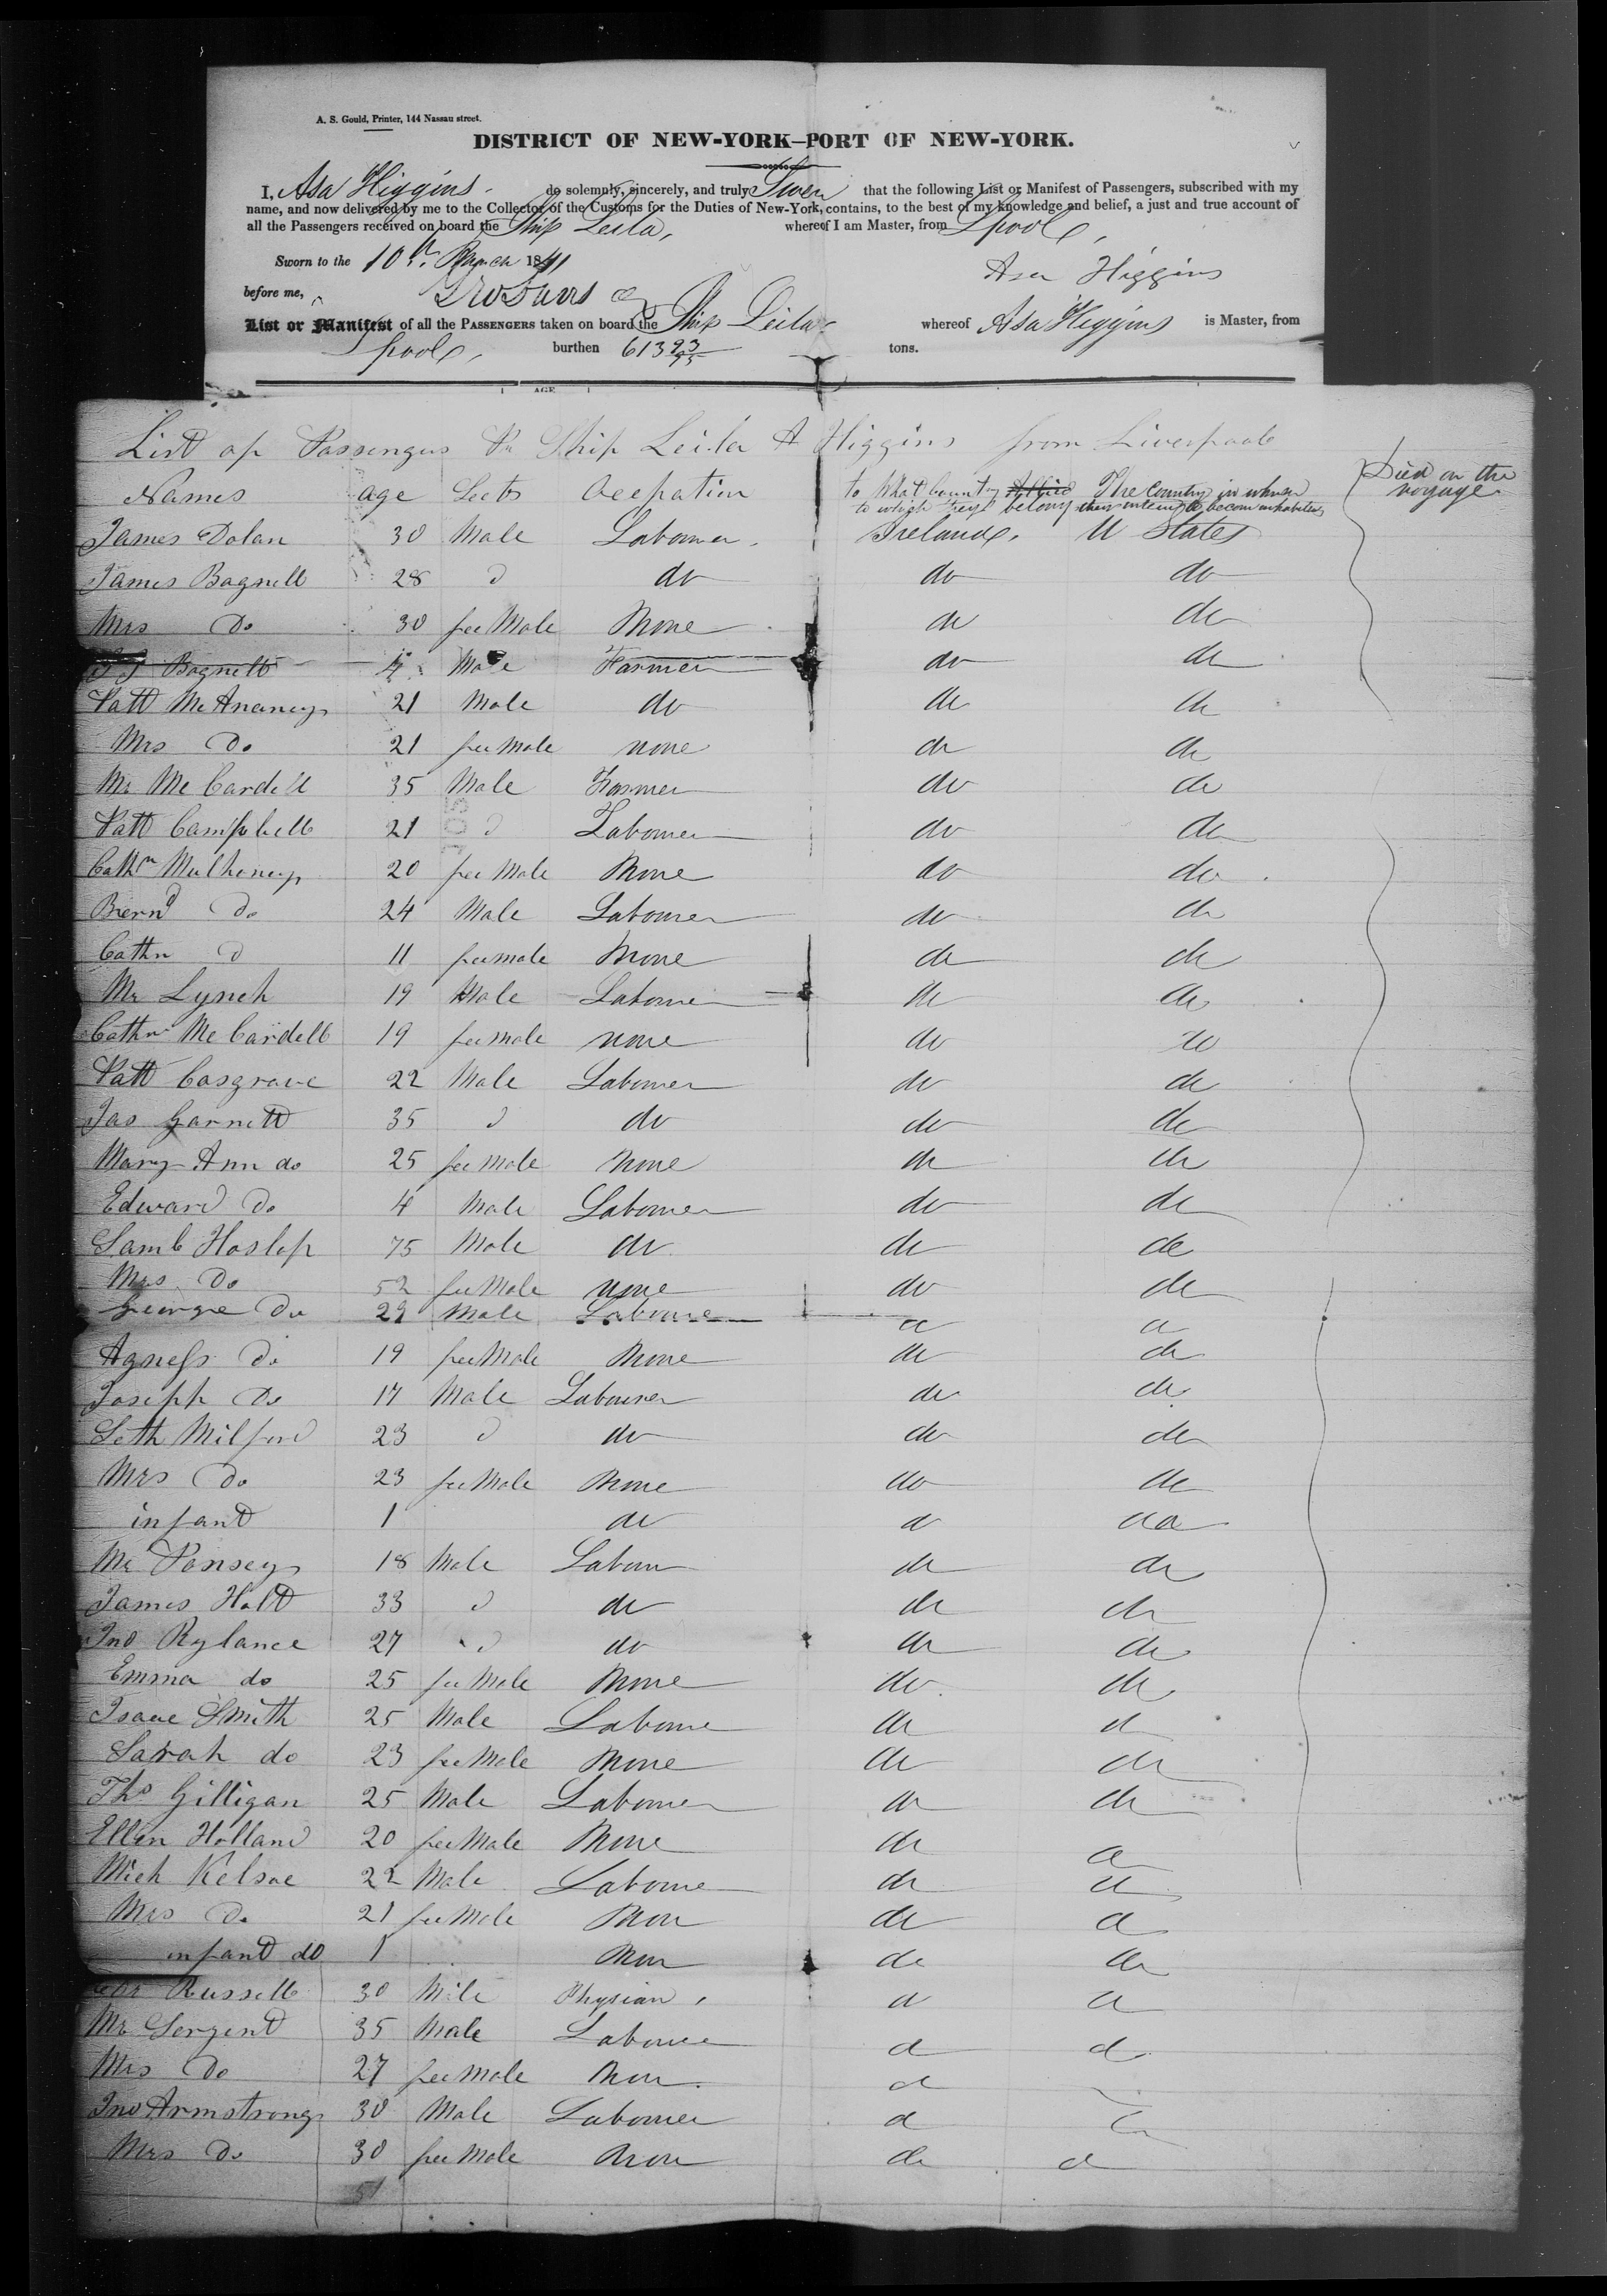 A. S. Gould, Printer, 144 Nassau street.
DISTRICT OF NEW-YORK—PORT OF NEW-YORK.
I, Asa Higgins do solemnly, sincerely, and truly Swear that the following List or Manifest of Passengers, subscribed with my
name, and now delivered by me to the Collector of the Customs for the Duties of New-York, contains, to the best of my knowledge and belief, a just and true account of
all the Passengers received on board the Ship Leila, whereof I am Master, from Lpool,
Sworn to the 10th March 1841
Asa Higgins
before me,
List or Manifest of all the PASSENGERS taken on board the Ship Leila whereof Asa Higgins is Master, from
Lpool, burthen 613 93/95 tons.
AGE
List of Passengers Pr Ship Leila A Higgins from Liverpool
Names age Sects Occpation to What County to which they belong The Country in whinn their inteing to becom inhabitens Died on the voyage
James Dolan 30 Male Labourer. Ireland. U States
James Bagnell 28 d do do do
Mrs Do 30 fee Male None do do
Bagnell 4 Male Farmer do do
Patt McAnaney 21 Male do do do
Mrs Do 21 fee Male none do do
Mr McCardell 35 Male Farmer do do
Patt Campbell 21 d Labourer do do
Cathn Mulheney 20 fee Male None do do
Bernd Do 24 Male Labourer do do
Cathn d 11 feemale None do do
Mr Lynch 19 Male Labourer do do
Cathn McCardell 19 feemale none do do
Patt Cosgrave 22 Male Labourer do do
Jas Garnett 35 d do do do
Mary Ann do 25 fee male None do do
Edward Do 4 Male Labourer do do
Saml Haslop 75 Male do do do
Mrs Do 52 fee Male none do do
George Do 29 Male Laboure d d
Agness Do 19 fee Male None do do
Joseph Do 17 Male Labourer do do
Seth Milford 23 d do do do
Mrs Do 23 fee Male None do do
infant 1 do d do
Mr Pansey 18 Male Labour do do
James Holt 33 d do do do
Jno Rylance 27 d do do do
Emma do 25 fee Male None do do
Isaac Smith 25 Male Laboure do d
Sarah do 23 fee Male None do do
Thos Gilligan 25 Male Labourer do do
Ellen Holland 20 fee Male None do d
Mich Kelsoe 22 Male Laboure do d
Mrs Do 21 fee Male Non do d
infant do 1 Non do do
Russell 30 Male Physian, d d
Mr Sergent 35 Male Laboure d d
Mrs Do 27 fee Male Non d
Jno Armstrong 30 Male Labourer d d
Mrs Do 30 fee Male Non do d
51